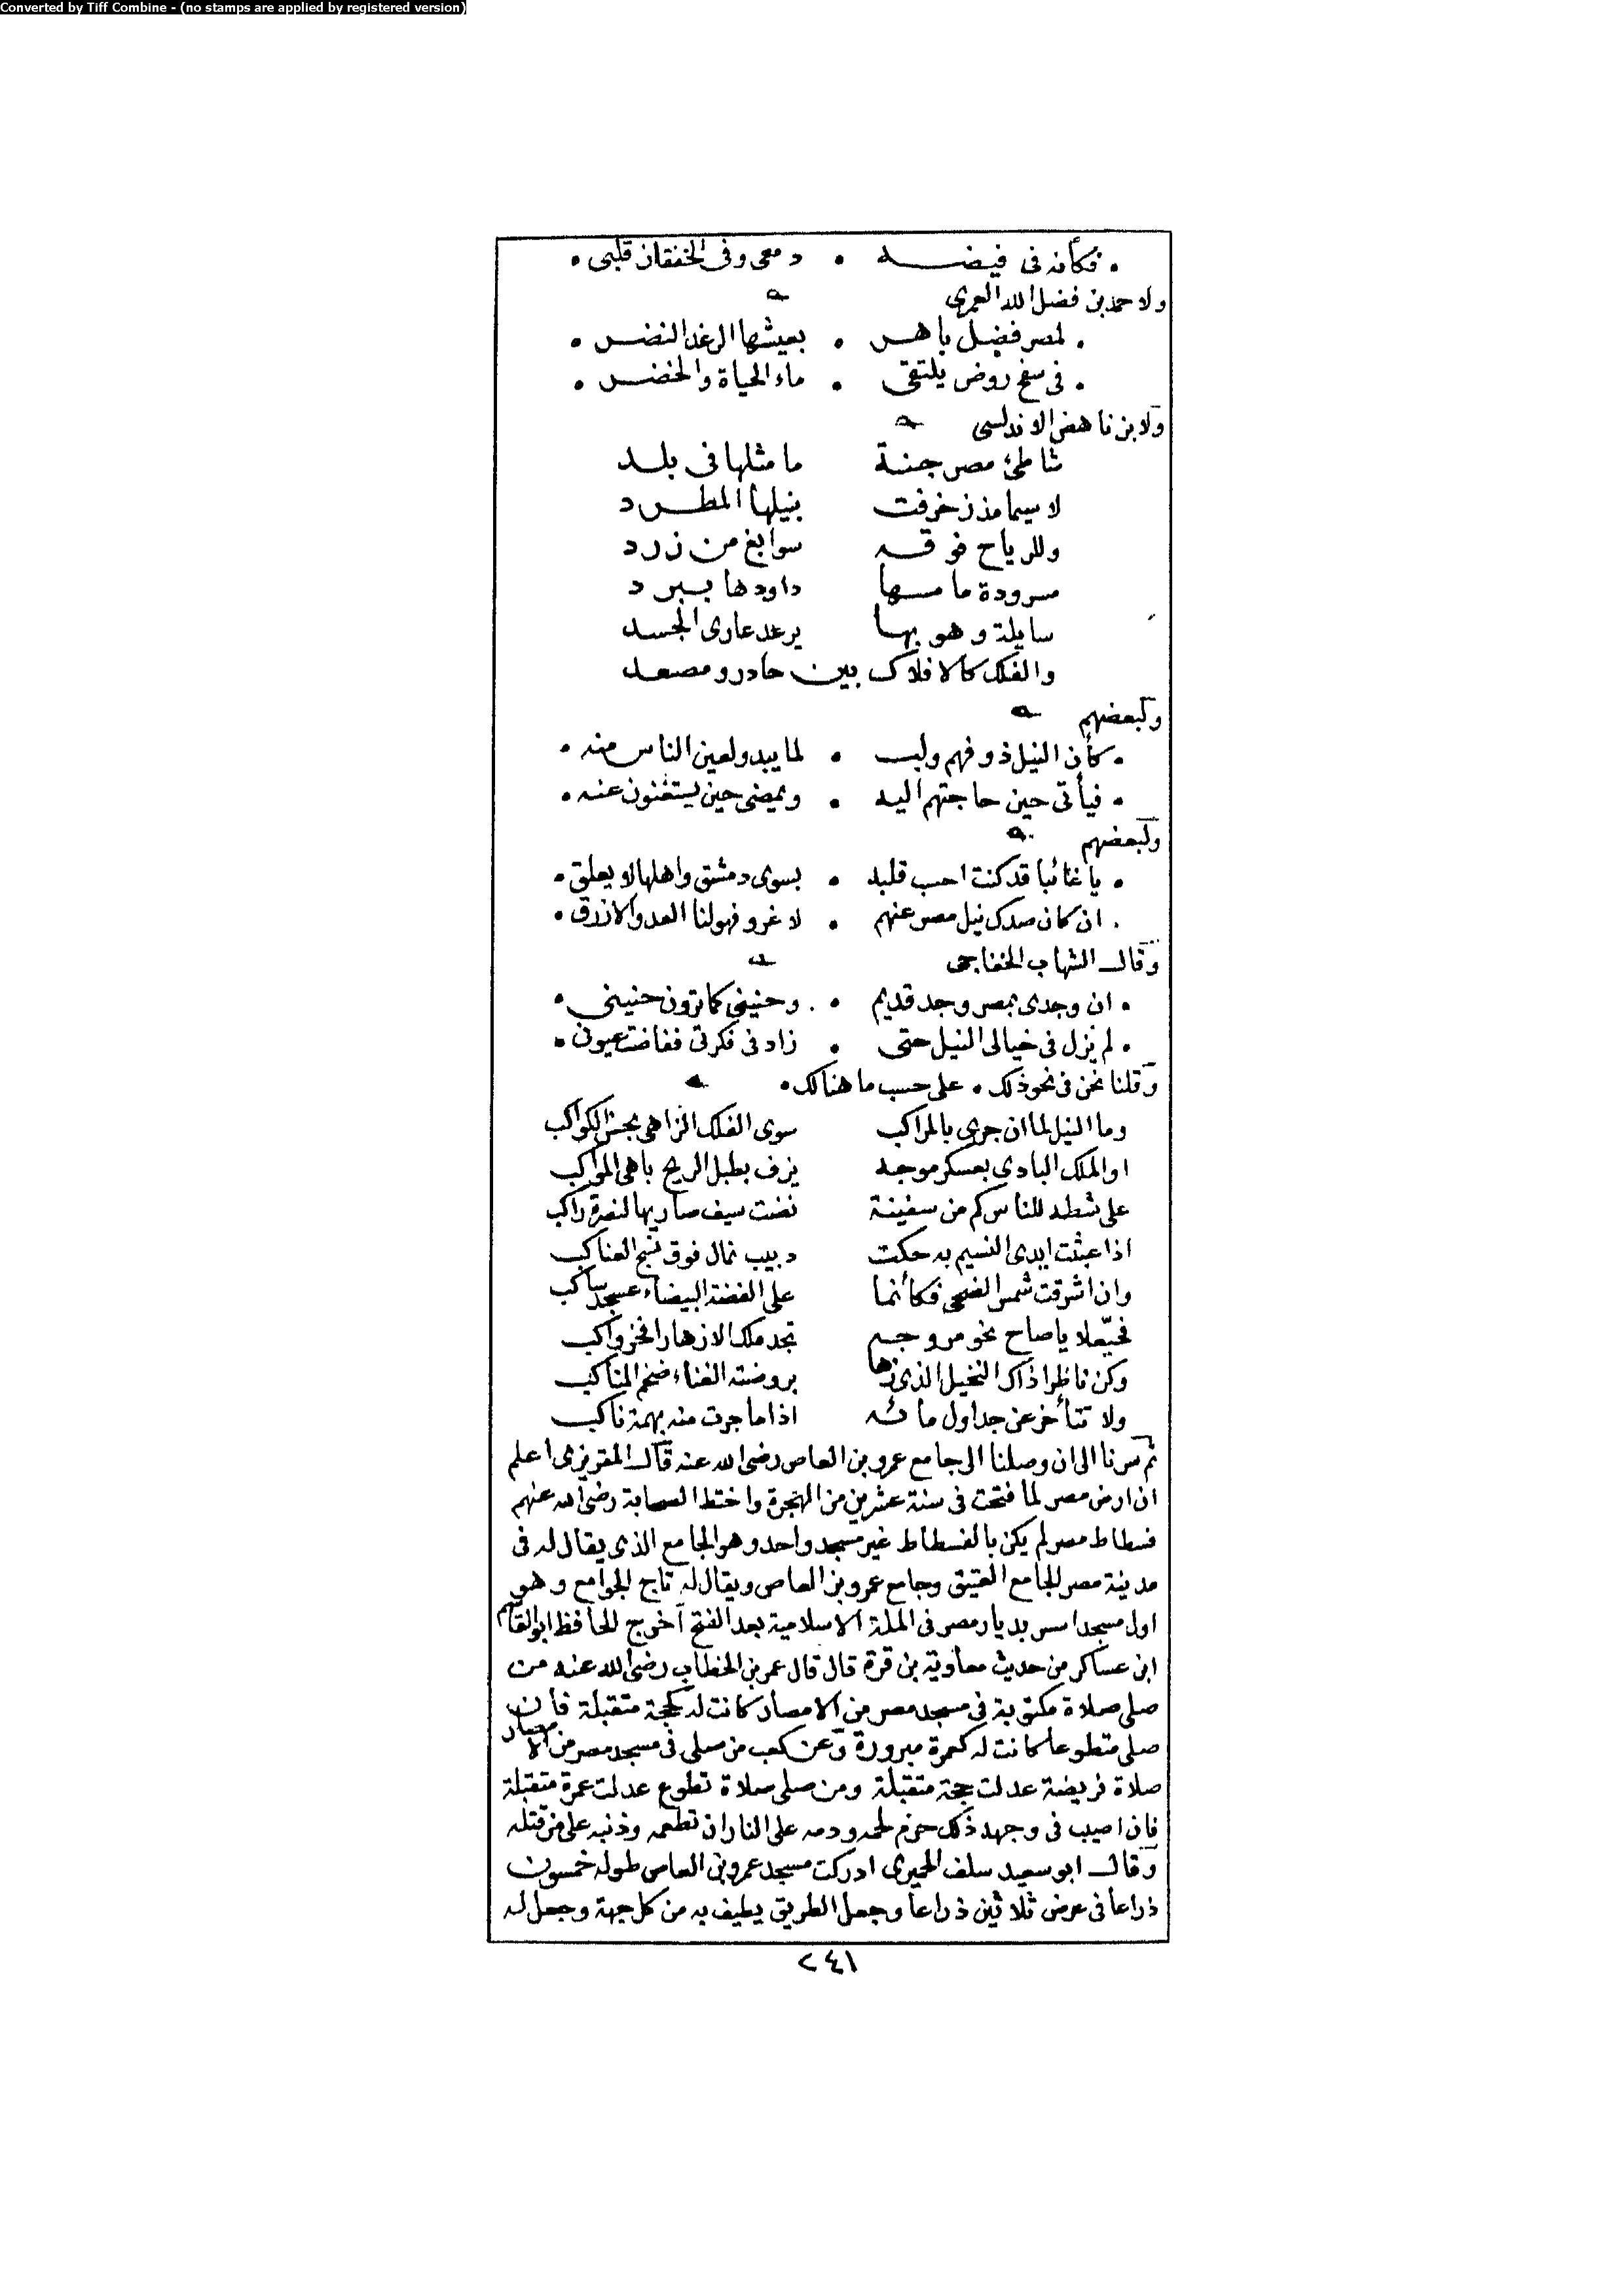 Converted by Tiff Combine - (no stamps are applied by registered version)
• فكأنه فى فيضه • دمعى وفى الخفقان قلبى •
ولاحمد بن فضل الله العمرى
• لمصر فضل باهر • بعيشها الرغد النضر •
• فى سفح روض يلتقى • ماء الحياة والخضر •
ولابن ناهض الاندلسى
شاطئ مصر جنة ما مثلها فى بلد
لا سيما مذ زخرفت بنيلها المطرد
وللرياح فوقه سوابغ من زرد
مسرودة ما مسها داودها بمبرد
سايلة وهو بها يرعد عارى الجسد
والفلك كالافلاك بين حادر ومصعد
ولبعضهم
• كأن النيل ذو فهم ولب • لما يبدو لعين الناس منه •
• فيأتى حين حاجتهم اليه • ويمضى حين يستغنون عنه •
ولبعضهم
• يا غائبا قد كنت احسب قلبه • بسوى دمشق واهلها لا يعلق •
• ان كان صدك نيل مصر عنهم • لا غرو فهو لنا العدو الازرق •
وقال الشهاب الخفاجى
• ان وجدى بمصر وجد قديم • وحنينى كما ترون حنينى •
• لم يزل فى خيالى النيل حتى • زاد فى فكرتى ففاضت عيونى •
وقلنا نحن فى نحو ذلك • على حسب ما هنالك •
وما النيل لما ان جرى بالمراكب سوى الفلك الزاهى بحسن الكواكب
او الملك البادى بعسكر موجه يزف بطبل الريح باهى المواكب
على شطه للناس كم من سفينة نضت سيف صاريها لنصرة راكب
اذا عبثت ايدى النسيم به حكت دبيب نمال فوق نسج العناكب
وان اشرقت شمس الضحى فكأنما على الفضة البيضاء عسجد ساكب
فحيّعلا يا صاح نحو مروجه تجد ملك الازهار افخر واكب
وكن ناظرا ذاك النخيل الذى زها بروضته الغناء ضخم المناكب
ولا تتأخر عن جداول مائه اذا ما جرت منه بهمة ناكب
ثم سرنا الى ان وصلنا الى جامع عمرو بن العاص رضى الله عنه قال المقريزى اعلم
ان ارض مصر لما فتحت فى سنة عشرين من الهجرة واختط الصحابة رضى الله عنهم
فسطاط مصر لم يكن بالفسطاط غير مسجد واحد وهو الجامع الذى يقال له فى
مدينة مصر الجامع العتيق وجامع عمرو بن العاص ويقال له تاج الجوامع وهو
اول مسجد اسس بديار مصر فى الملة الاسلامية بعد الفتح أخرج الحافظ ابو القاسم
ابن عساكر من حديث معاوية بن قرة قال قال عمر بن الخطاب رضى الله عنه من
صلى صلاة مكتوبة فى مسجد مصر من الامصار كانت له كحجة متقبلة فان
صلى متطوعا كانت له كعمرة مبرورة وعن كعب من صلى فى مسجد مصر من الامصار
صلاة فريضة عدلت حجة متقبلة ومن صلى صلاة تطوع عدلت عمرة متقبلة
فان اصيب فى وجهه ذلك حرم لحمه ودمه على النار ان تطعمه وذنبه على من قتله
وقال ابو سعيد سلف الحميرى ادركت مسجد عمرو بن العاص طوله خمسون
ذراعا فى عرض ثلاثين ذراعا وجعل الطريق يطيف به من كل جهة وجعل له
٢٤١